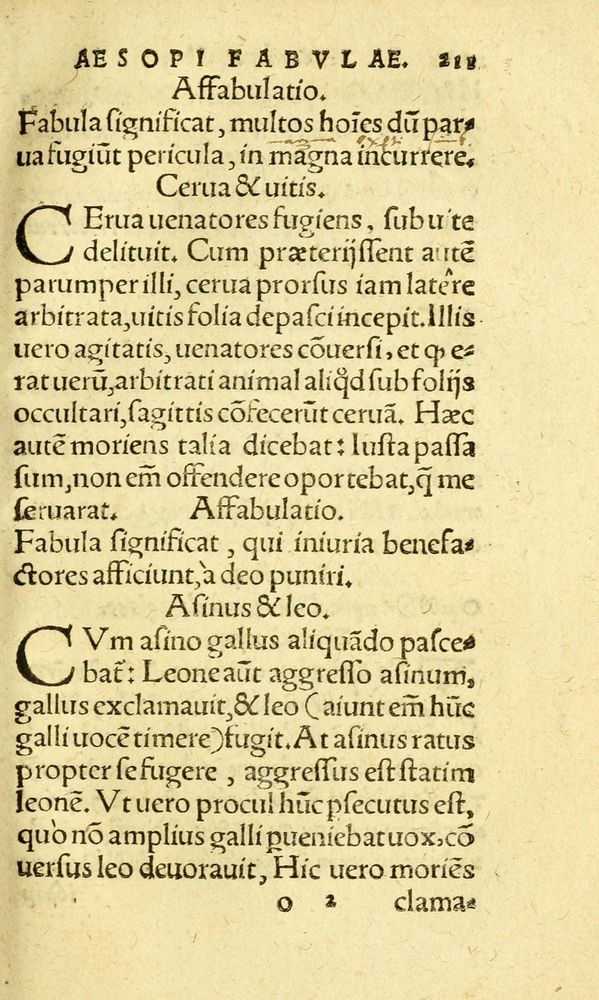 AESOPI FABVLAE. 212
Affabulatio.
Fabula ſignificat, multos hoīes dū par⸗
ua fugiūt pericula, in magna incurrere.
Cerua & uitis.
CErua uenatores fugiens, ſub uite
delituit. Cum præterijſſent autē
parumper illi, cerua prorſus iam latere
arbitrata, uitis folia depaſci incepit. Illis
uero agitatis, uenatores cōuerſi, et ꝙ e⸗
rat uerū, arbitrati animal aliqd ſub folijs
occultari, ſagittis cōfecerūt ceruā. Hæc
autē moriens talia dicebat: Iuſta paſſa
ſum, non em̄ offendere oportebat, q̄ me
ſeruarat. Affabulatio.
Fabula ſignificat, qui iniuria benefa⸗
ctores afficiunt, à deo puniri.
Aſinus & leo.
CVm aſino gallus aliquādo paſce⸗
bat̄: Leone aūt aggreſſo aſinum,
gallus exclamauit, & leo (aiunt em̄ hūc
galli uocē timere) fugit. At aſinus ratus
propter ſe fugere, aggreſſus eſt ſtatim
leonē. Vt uero procul hūc ꝓſecutus eſt,
quò nō amplius galli ꝑueniebat uox, cō
uerſus leo deuorauit, Hic uero moriēs
o 2 clama⸗